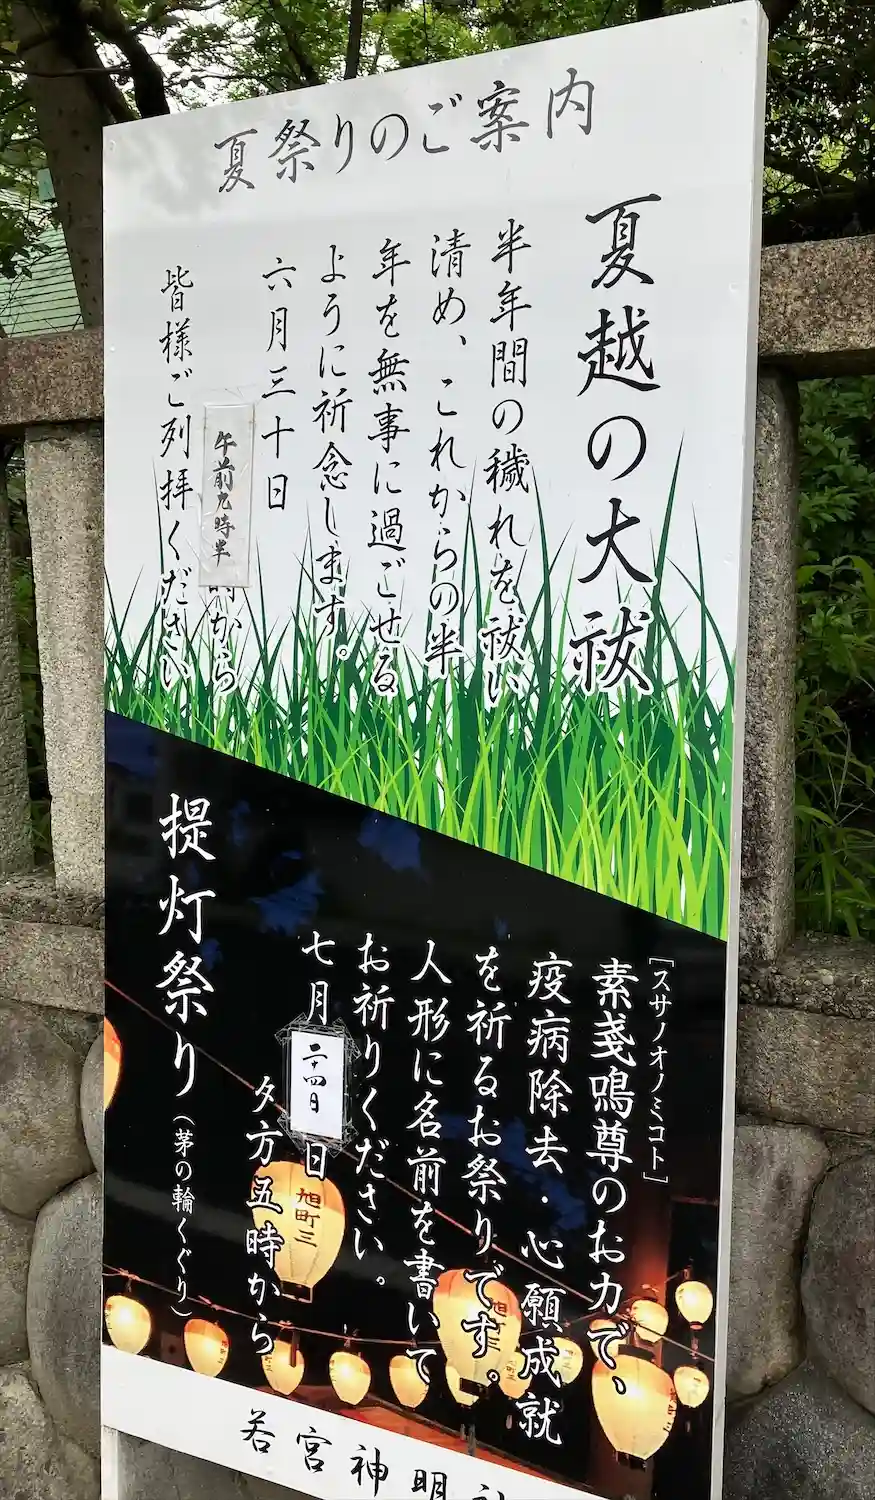 夏祭りのご案内
夏越の大祓
半年間の穢れを祓い
清め、これからの半
年を無事に過ごせる
ように祈念します。
六月三十日
午前九時半
時から
皆様ご列拝ください
[スサノオノミコト]
素戔嗚尊のお力で、
疫病除去・心願成就
を祈るお祭りです。
人形に名前を書いて
お祈りください。
七月二十四日日
夕方五時から
提灯祭り(茅の輪くぐり)
旭町三
旭町三
旭町三
若宮神明社